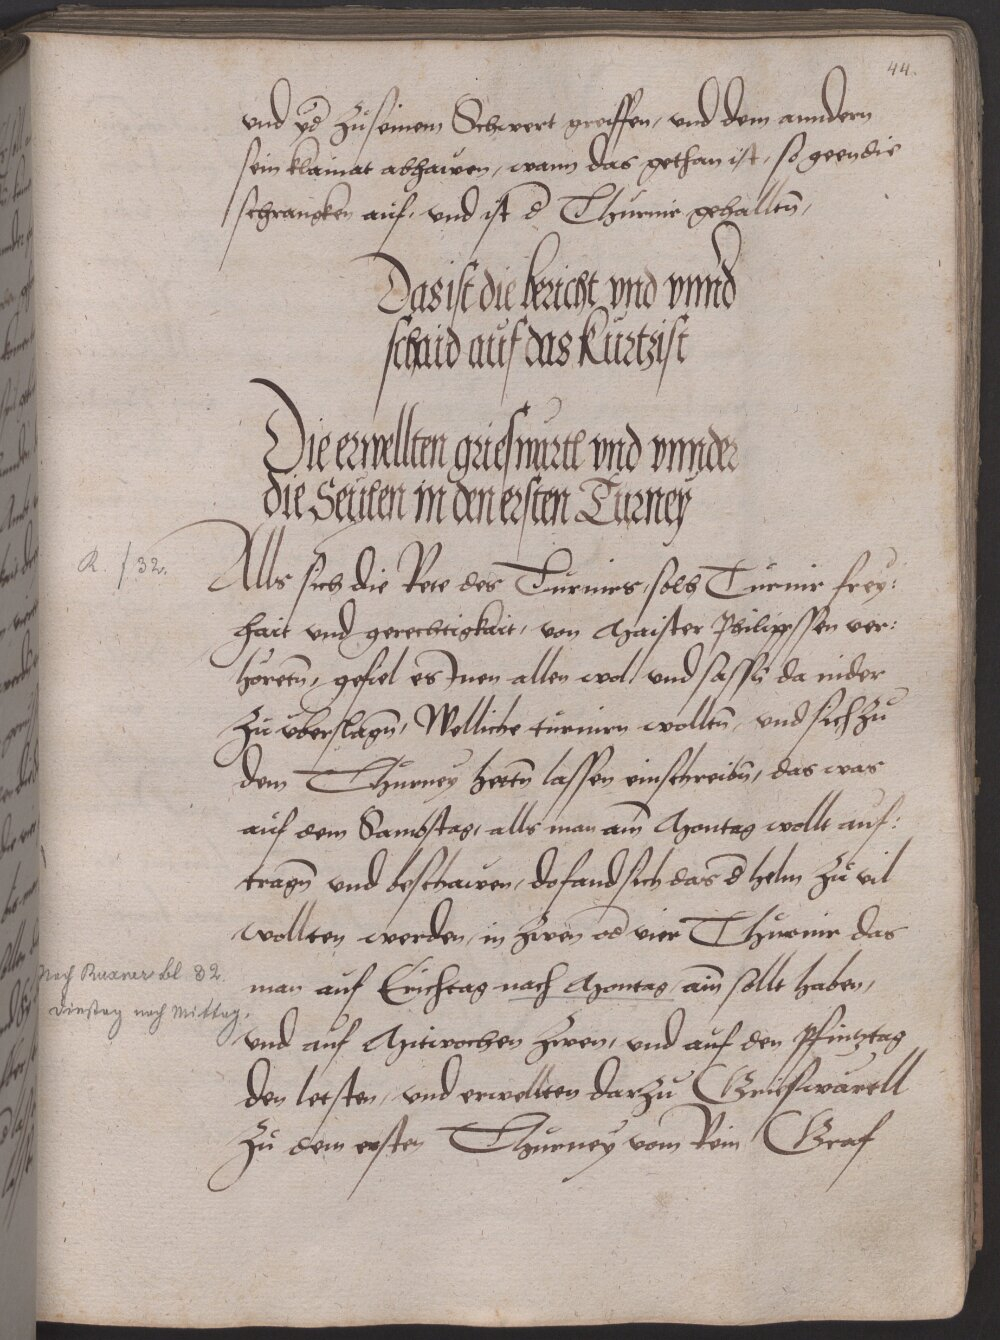 44.
vnd yed zu seinem Schwert greiffen, vnd dem anndern
sein klainat abhawen, wann das gethan ist, so geen die
schrangken auf, vnd ist d Thurnir gehalltn,
Das ist die bericht vnd vnnd
schaid auf das Kurtzist
Die erwellten grieswartl vnd vnnder
die Seulen in den ersten Turney
R. f 82.
Alls sich die Rete des Turnirs, solh Turnir frey:
hait vnd gerechtigkait, von Maister Philipssen ver:
horetn, gefiel es Inen allen wol, vnd sassn da nider
zu vberslagn, Welliche turnirn wolltn, vnd sich zu
dem Thurney hettn lassen einschreibn, das was
auf dem Sambstag, alls man am Montag wollt auf:
tragn vnd beschawen, do fand sich das d helm zu vil
wollten werden, in zwen od vier Thurnir das
Nach Ruxner bl 82
man auf Erichtag nach Montag ain sollt haben,
Dinstag nach Mittag.
vnd auf Mitwochen zwen, vnd auf den Pfintztag
den letsten, vnd erwellten darzu Grieswartell
zu dem ersten Thurney vom Rein Graf